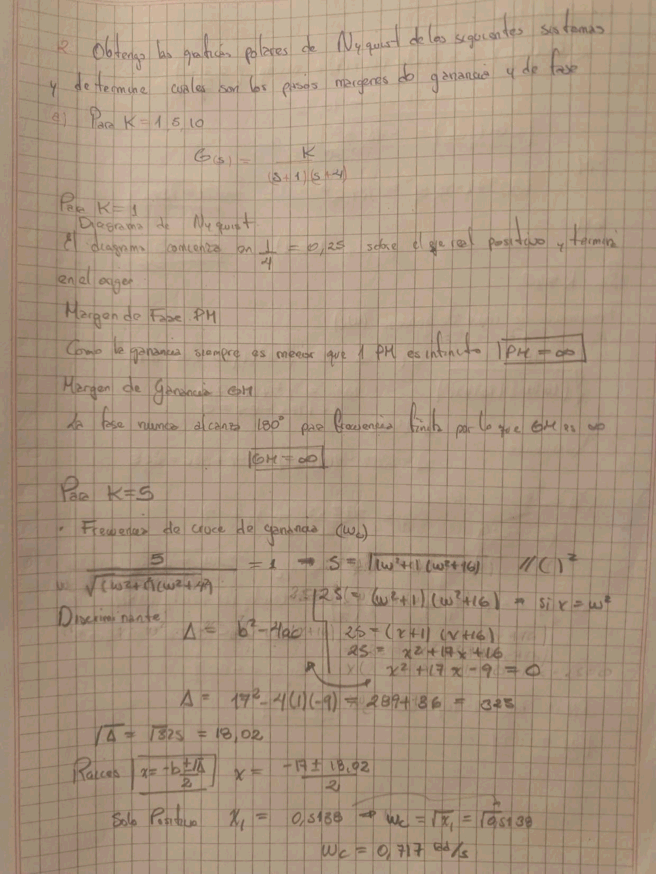 2 Obtenga las graficas polares de Nyquist de los siguientes sistemas
y determine cuales son los margenes de ganancia y de fase
a) Para K = 1,5,10
G(s) = K / (s+1)(s+4)
Para K=1
Diagrama de Nyquist
El diagrama comienza en 1/4 = 0,25 sobre el eje real positivo y termina
en el origen
Margen de Fase PM
Como la ganancia siempre es menor que 1 PM es infinito |PM = ∞|
Margen de Ganancia GM
La fase nunca alcanza 180° para frecuencia finita por lo que GM es ∞
|GM = ∞|
Para K=5
• Frecuencia de cruce de ganancia (ωc)
5 / √((ω²+1)(ω²+4²)) = 1 → 5 = √((ω²+1)(ω²+16)) //()²
25 = (ω²+1)(ω²+16) → si x = ω²
Discriminante
Δ = b² - 4ac
25 = (x+1)(x+16)
25 = x²+17x+16
x²+17x-9 = 0
Δ = 17² - 4(1)(-9) = 289+36 = 325
√Δ = √325 = 18,02
Raices |x = -b±√Δ / 2| x = -17 ± 18,02 / 2
Solo Positivo x₁ = 0,5138 → ωc = √x₁ = √0,5138
ωc = 0,717 rad/s